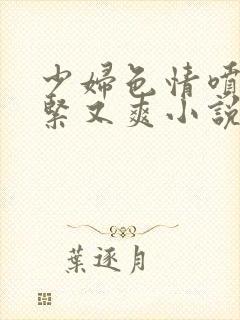 少婦色情噴
緊又爽小說
葉逐月